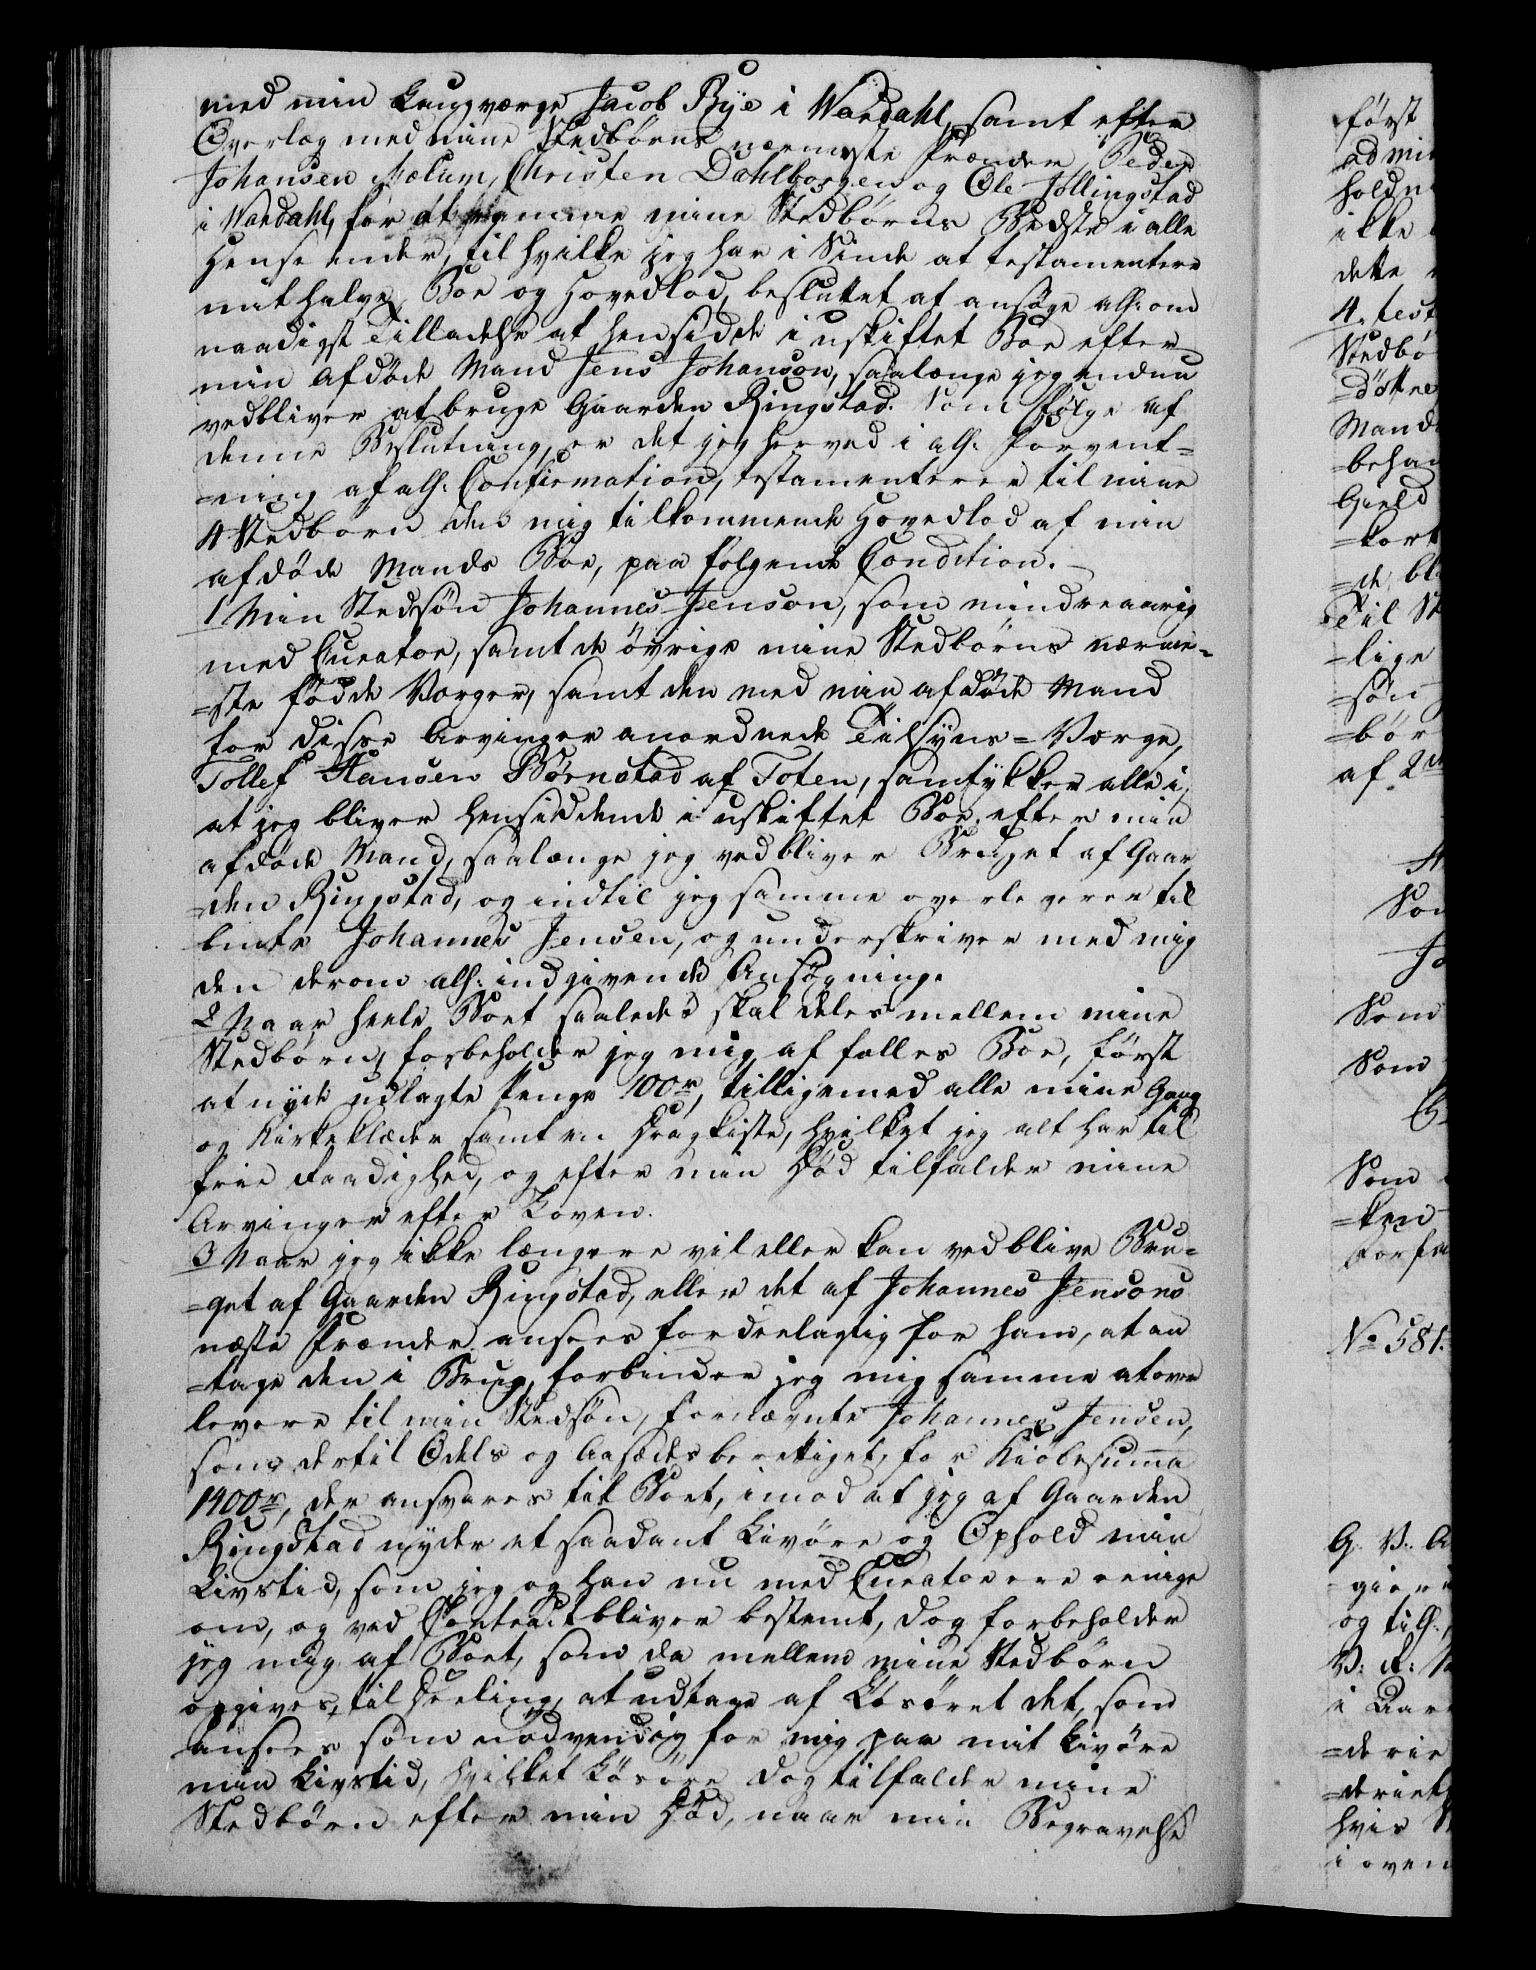 med min Laugværge Jacob Bÿe i Wardahl, samt efter
Overlæg med mine Stedbørns nærmeste Frænder, Peder
Johansen Mælum, Christen Dahlborgen og Ole Jøllingstad
i Wardahl, for at fremme mine Stedbørns Bedste i alle
Henseender, til hvilke jeg har i Sinde at testamentere
mit halve Boe og Hovedlod, besluttet at ansøge allr: om
naadigst Tilladelse at hensidde i uskiftet Boe efter
min afdøde Mand Jens Johanson, saalænge jeg endnu
vedbliver at bruge Gaarden Ringstad. Som Følge af
denne Beslutning, er det jeg herved i allr: Forvent-
=ning af allr: Confirmation, testamenterer til mine
4 Stedbørn den mig tilkommende Hovedlod af min
afdøde Mands Boe, paa følgende Condition.
1 Min Stedsøn Johannes Jenson, som mindreaarig
med Curator, samt de øvrige mine Stedbørns nærme-
=ste fødde Værger, samt den med min afdøde Mand
for disse Arvinger anordnede Tilsyns-Værge,
Tollef Hansen Børnstad af Toten, samtykker alle i,
at jeg bliver hensiddende i uskiftet Boe efter min
afdøde Mand, saalænge jeg vedbliver Bruget af Gaar
=den Ringstad, og indtil jeg samme overleverer til
bmte Johannes Jensen, og underskriver med mig
den derom allr: indgivende Ansøgning.
2 Naar heele Boet saaledes skal deles mellem mine
Stedbørn, forbeholder jeg mig af fælles Boe, først
at nyde udlagte Penge 100 rd, tilligemed alle mine Gang
og Kirkeklæder samt en Dragkiste, hvilket jeg alt har til
frie Raadighed, og efter min Død tilfalder mine
Arvinger efter Loven.
3 Naar jeg ikke længere vil eller kan vedblive Bru-
=get af Gaarden Ringstad, eller det af Johannes Jensons
næste Frænder ansees fordeelagtig for ham, at an
=tage den i Brug, forbinder jeg mig samme at over
levere til min Stedsøn, fornævnte Johannes Jensen,
som dertil Odels og Aasædesberettiget, for Kiøbesumma
1400 rd, der ansvares til Boet, imod at jeg af Gaarden
Ringstad nyder et saadant Livøre og Ophold min
Livstid, som jeg og han nu med Curator ere eenige
om, og ved Contract bliver bestemt, dog forbeholder
jeg mig af Boet, som da mellem mine Stedbørn
opgives til Deeling, at udtage af Løsøret det, som
ansees som nødvendig for mig paa mit Livøre
min Livstid, hvilket Løsøre dog tilfalder mine
Stedbørn efter min Død, naar min Begravelse
først
admi
holdn
ikke
dette
4. test
Stedbø
=døttre
Mand
=behan
Gield
=kort
=de bl
Til St
=lige
=søn
=bør
af 2de
Som
Jo
Som
Som
Som
=ken
Forfa
No 581.
G. V. A
gier
og till:
i Aar
=derie
=deriet
hvis
i oven